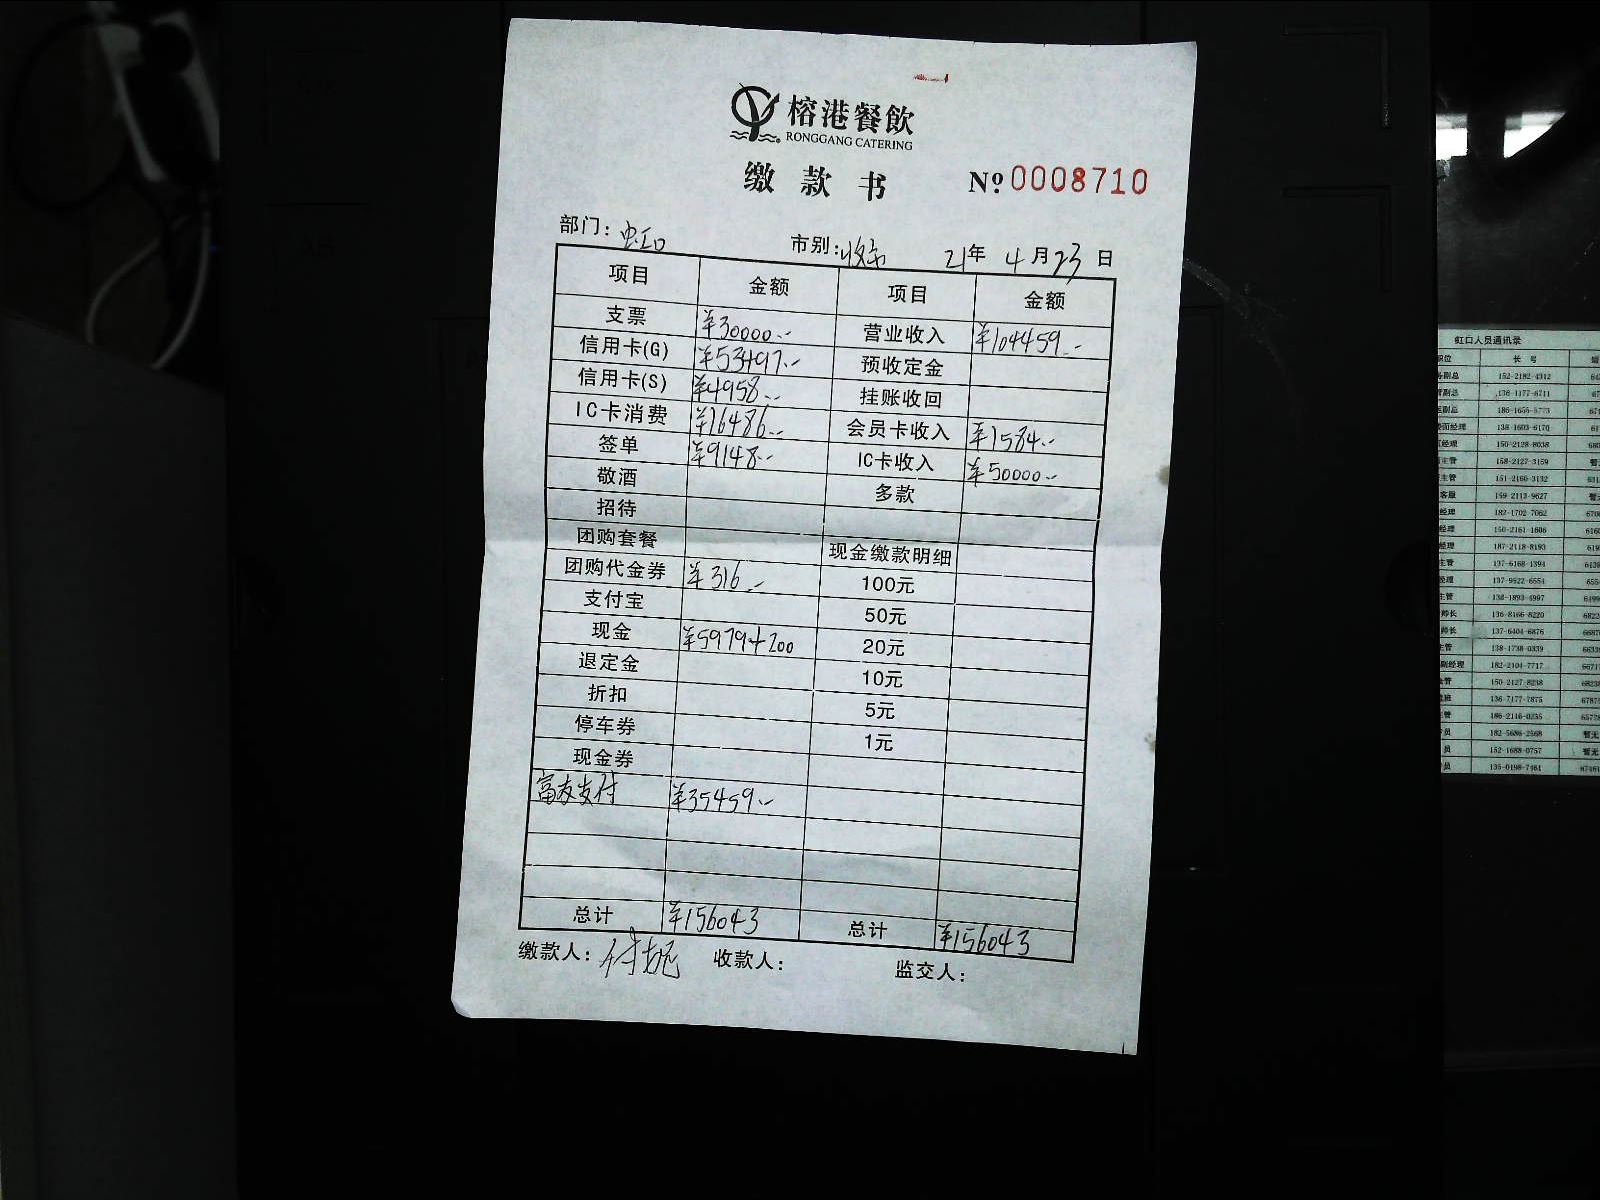 榕港餐飲
RONGGANG CATERING
缴款书 № 0008710
部门: 虹口 市别: 21年 4月23日
项目 金额 项目 金额
支票 ¥30000.- 营业收入 ¥104459.-
信用卡(G) ¥53497.- 预收定金
信用卡(S) ¥4958.- 挂账收回
IC卡消费 ¥16486.- 会员卡收入 ¥1584.-
签单 ¥9148.- IC卡收入 ¥50000.-
敬酒 多款
招待
团购套餐 现金缴款明细
团购代金券 ¥316.- 100元
支付宝 50元
现金 ¥5979+200 20元
退定金 10元
折扣 5元
停车券 1元
现金券
富友支付 ¥35459.-
总计 ¥156043 总计 ¥156043
缴款人: 收款人: 监交人:
虹口人员通讯录
职位 长号
副总 152-2182-4312
副总 136-1177-6711
副总
面经理 138-1603-6170
经理 150-2128-8038
主管 158-2127-3159
主管 151-2160-3132
客服 159-2113-9627
经理 182-1702-7062
经理 150-2161-1606
经理 187-2118-8193
主管 137-6168-1394
经理 137-9522-6554
主管 138-1893-4997
师长 136-8166-8220
师长 137-6404-6876
主管 138-1738-0339
副经理 182-2104-7717
管 150-2127-8238
班 136-7177-7875
管 186-2116-0235
员 182-5686-2568 暂无
员 152-1688-0757 暂无
员 135-0198-7461